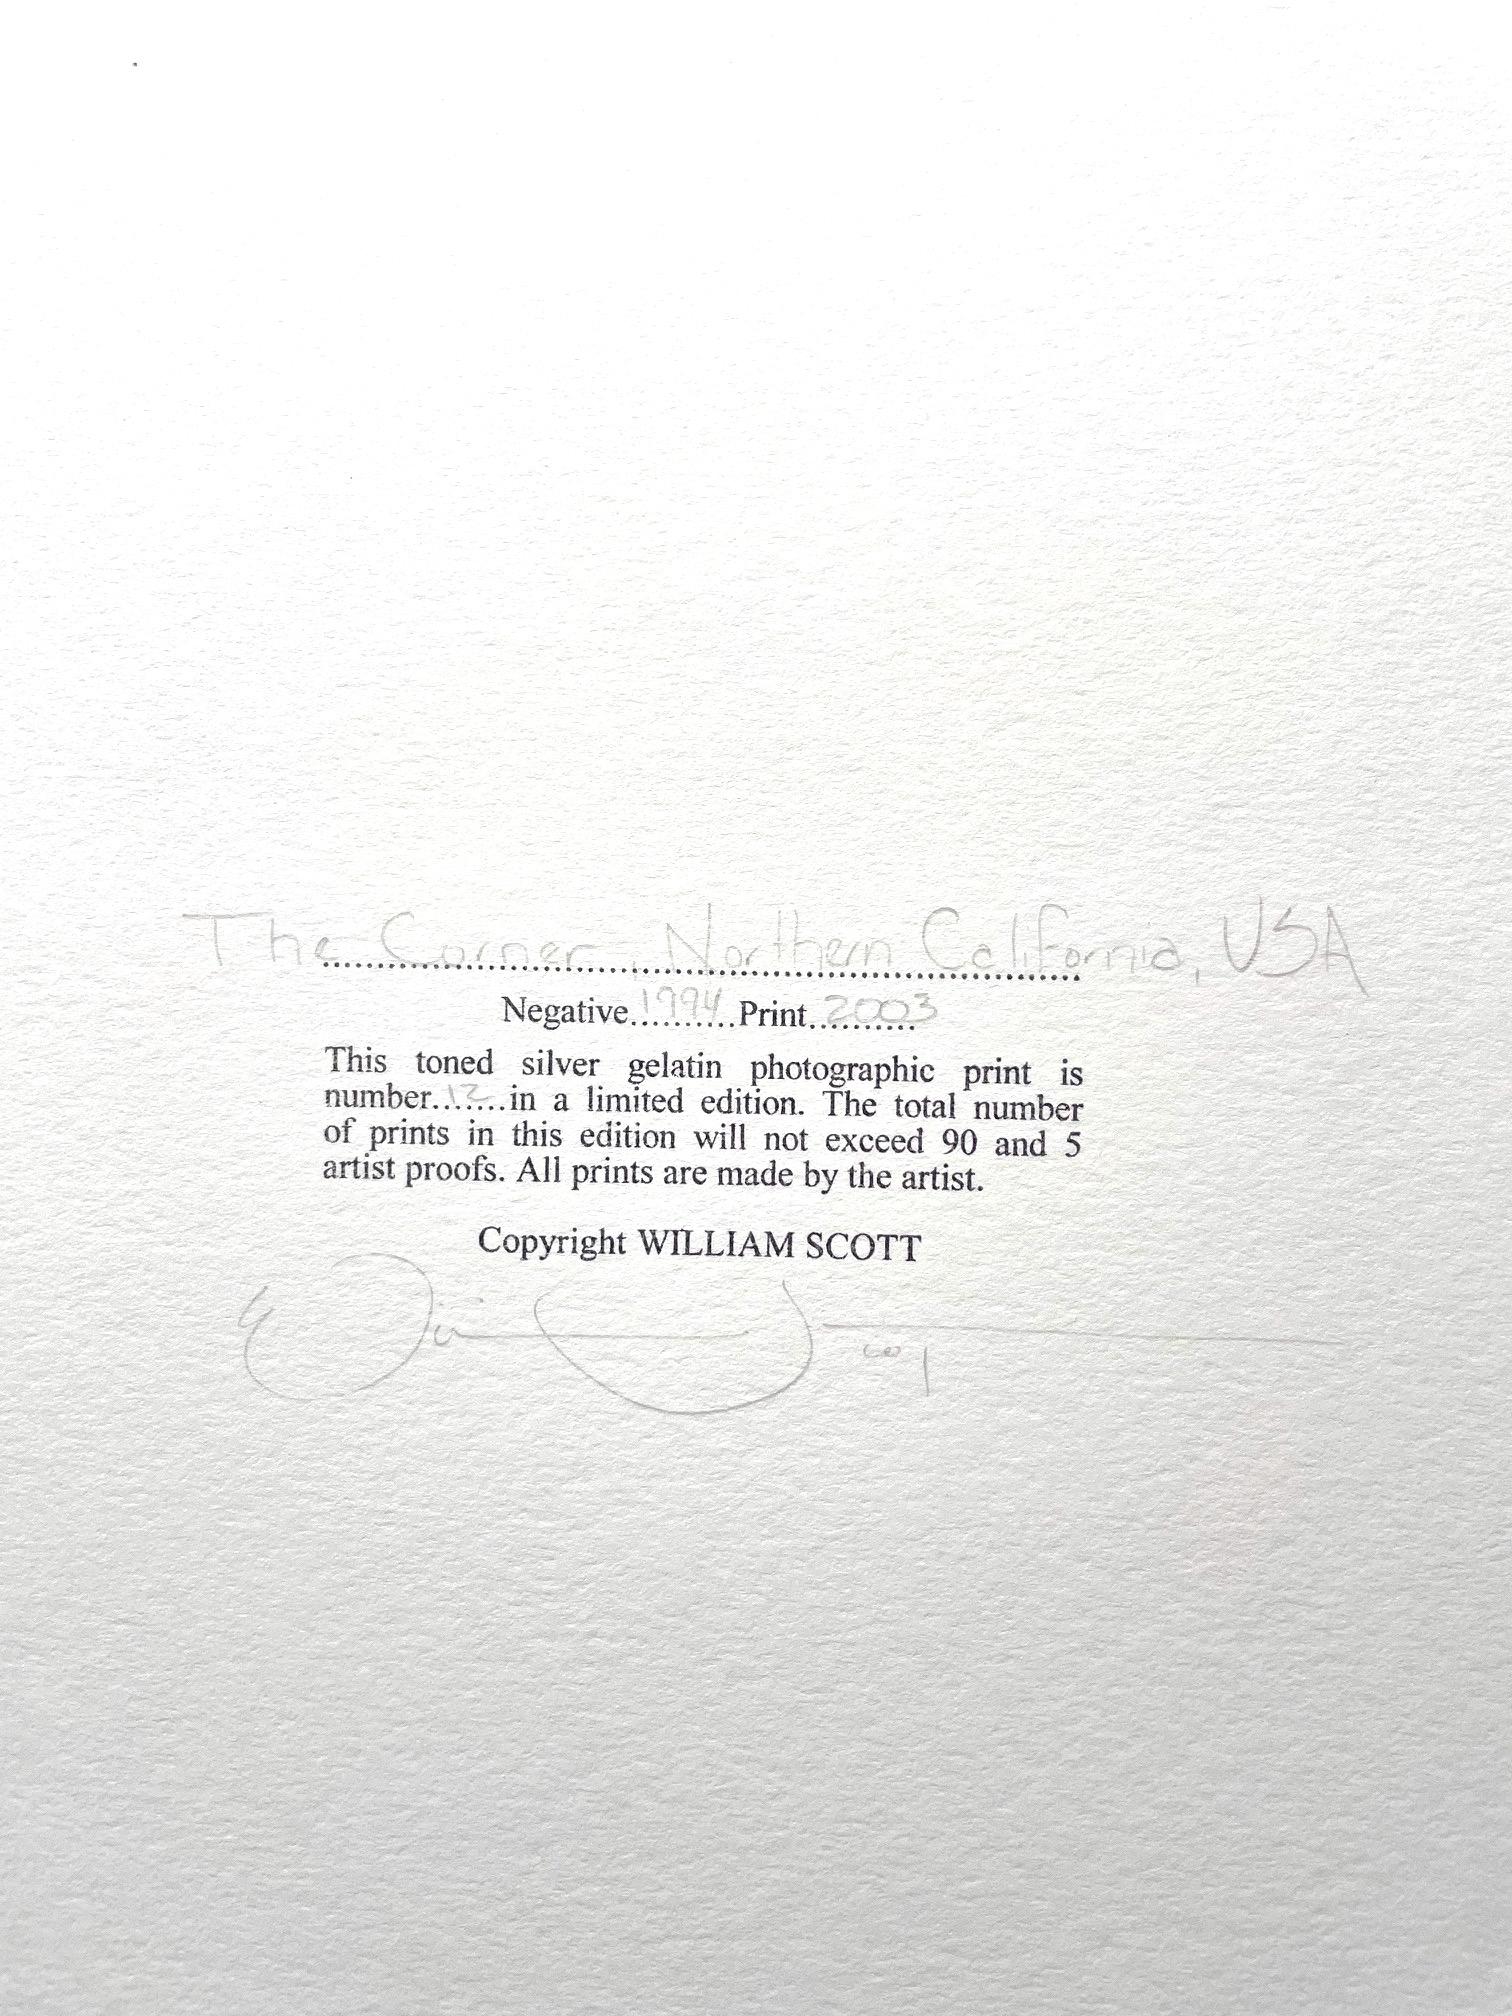 The Corner, Northern California, USA
Negative 1994 Print 2003
This toned silver gelatin photographic print is
number 12 in a limited edition. The total number
of prints in this edition will not exceed 90 and 5
artist proofs. All prints are made by the artist.
Copyright WILLIAM SCOTT